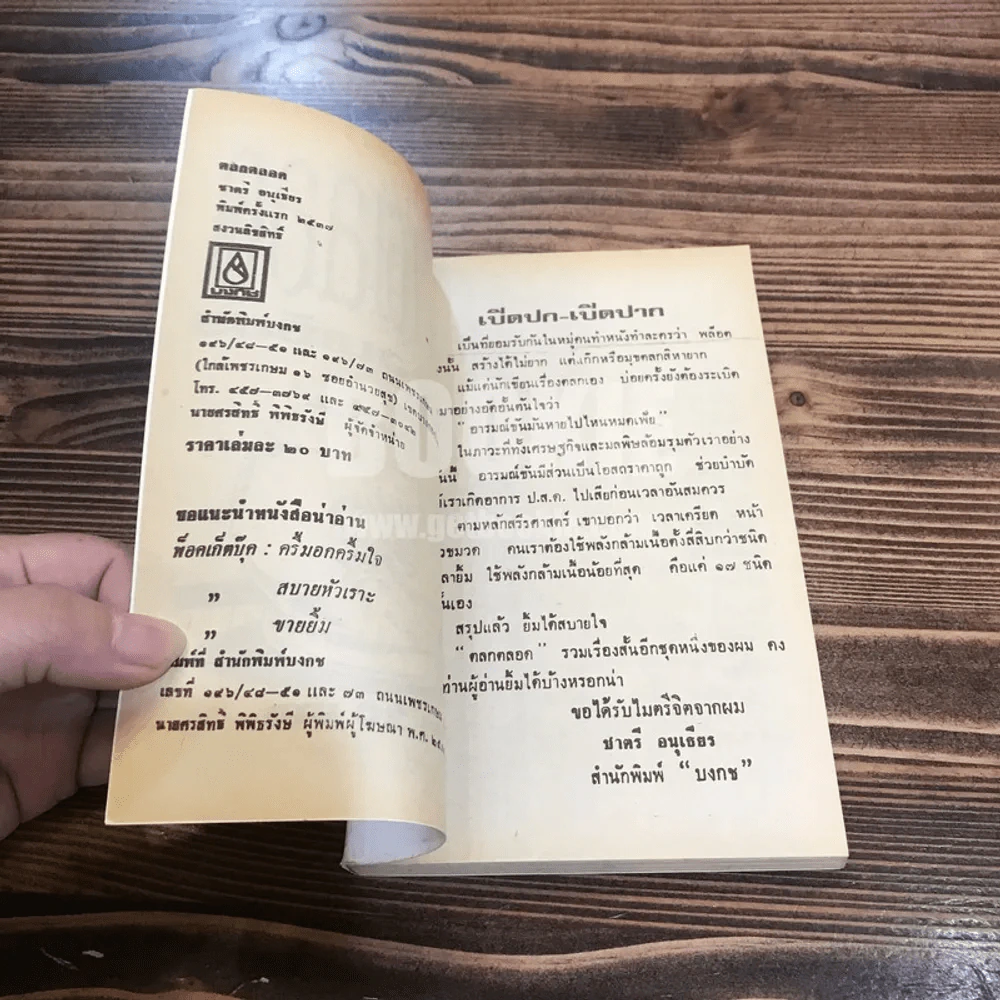 ตลกตลอด
ชาตรี อนุเธียร
พิมพ์ครั้งแรก ๒๕๓๗
สงวนลิขสิทธิ์
บงกช
สำนักพิมพ์บงกช
๑๙๖/๔๘–๕๑ และ ๑๙๖/๗๓ ถนนเพชรเกษม
(ใกล้เพชรเกษม ๑๖ ซอยอำนวยสุข)
โทร. ๔๕๗–๓๗๖๙ และ
นายศรสิทธิ์ พิพิธรังษี ผู้จัดจำหน่าย
ราคาเล่มละ ๒๐ บาท
ขอแนะนำหนังสือน่าอ่าน
พ็อคเก็ตบุ๊ค : ครึ้มอกครึ้มใจ
" สบายหัวเราะ
" ขายยิ้ม
พิมพ์ที่ สำนักพิมพ์บงกช
เลขที่ ๑๙๖/๔๘–๕๑ และ ๗๓ ถนนเพชรเกษม
นายศรสิทธิ์ พิพิธรังษี ผู้พิมพ์ผู้โฆษณา พ.ศ.
เปิดปก-เปิดปาก
เป็นที่ยอมรับกันในหมู่คนทำหนังทำละครว่า พล็อต
นั้น สร้างได้ไม่ยาก แต่แก๊กหรือมุขตลกสิหายาก
แม้แต่นักเขียนเรื่องตลกเอง บ่อยครั้งยังต้องระเบิด
มาอย่างอัดอั้นตันใจว่า
"อารมณ์ขันมันหายไปไหนหมดเพี่ย"
ในภาวะที่ทั้งเศรษฐกิจและมลพิษล้อมรุมตัวเราอย่าง
นี้ อารมณ์ขันมีส่วนเป็นโอสถราคาถูก ช่วยบำบัด
เราเกิดอาการ ป.ส.ด. ไปเสียก่อนเวลาอันสมควร
ตามหลักสรีรศาสตร์ เขาบอกว่า เวลาเครียด หน้า
ขมวด คนเราต้องใช้พลังกล้ามเนื้อตั้งสี่สิบกว่าชนิด
ยิ้ม ใช้พลังกล้ามเนื้อน้อยที่สุด คือแค่ ๑๗ ชนิด
เอง
สรุปแล้ว ยิ้มได้สบายใจ
"ตลกตลอด" รวมเรื่องสั้นอีกชุดหนึ่งของผม คง
ท่านผู้อ่านยิ้มได้บ้างหรอกน่า
ขอได้รับไมตรีจิตจากผม
ชาตรี อนุเธียร
สำนักพิมพ์ "บงกช"